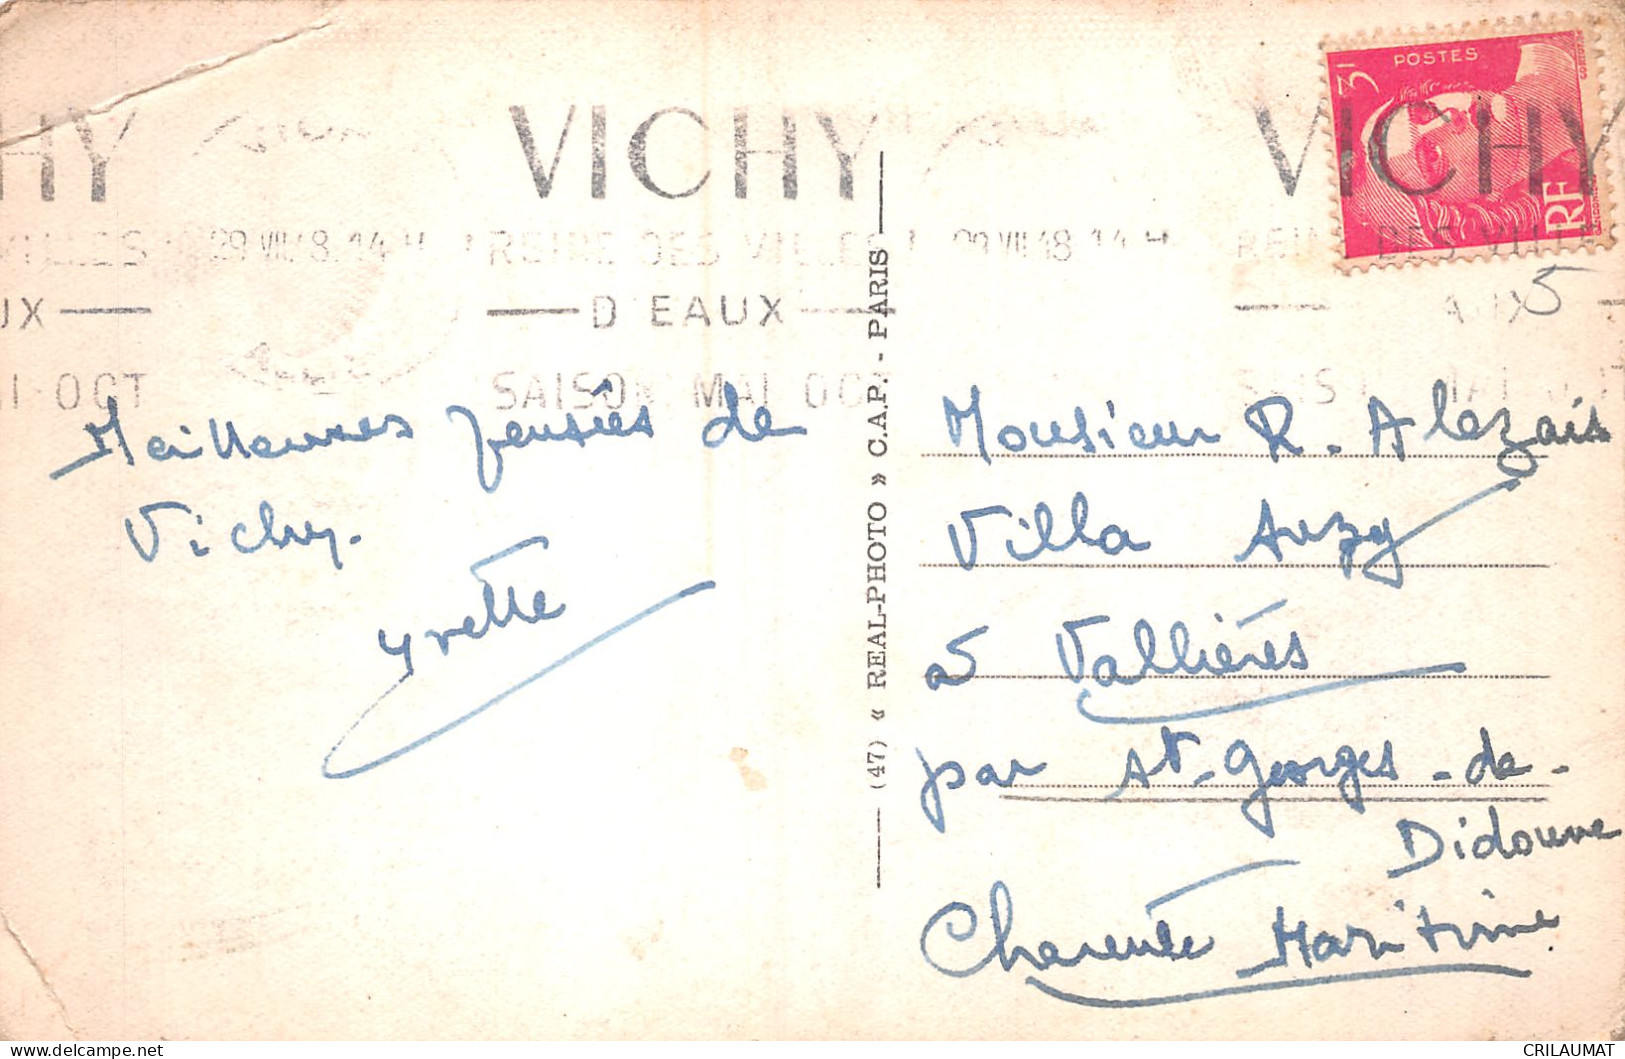 POSTES
3F
RF
HY VICHY VICHY
VILLES 29 VII 48. 14 H REINE DES VILLES 29 VII 48 14 H REINE DES VILLES
UX D'EAUX AUX 5
I-OCT SAISON MAI OCT MAI OCT
Meilleures pensées de
Vichy.
Yvette
(47) « REAL-PHOTO » C.A.P. - PARIS
Monsieur R. Alezais
Villa Auzy
à Vallières
par St-Georges-de-
Didonne
Charente Maritime
CRILAUMAT